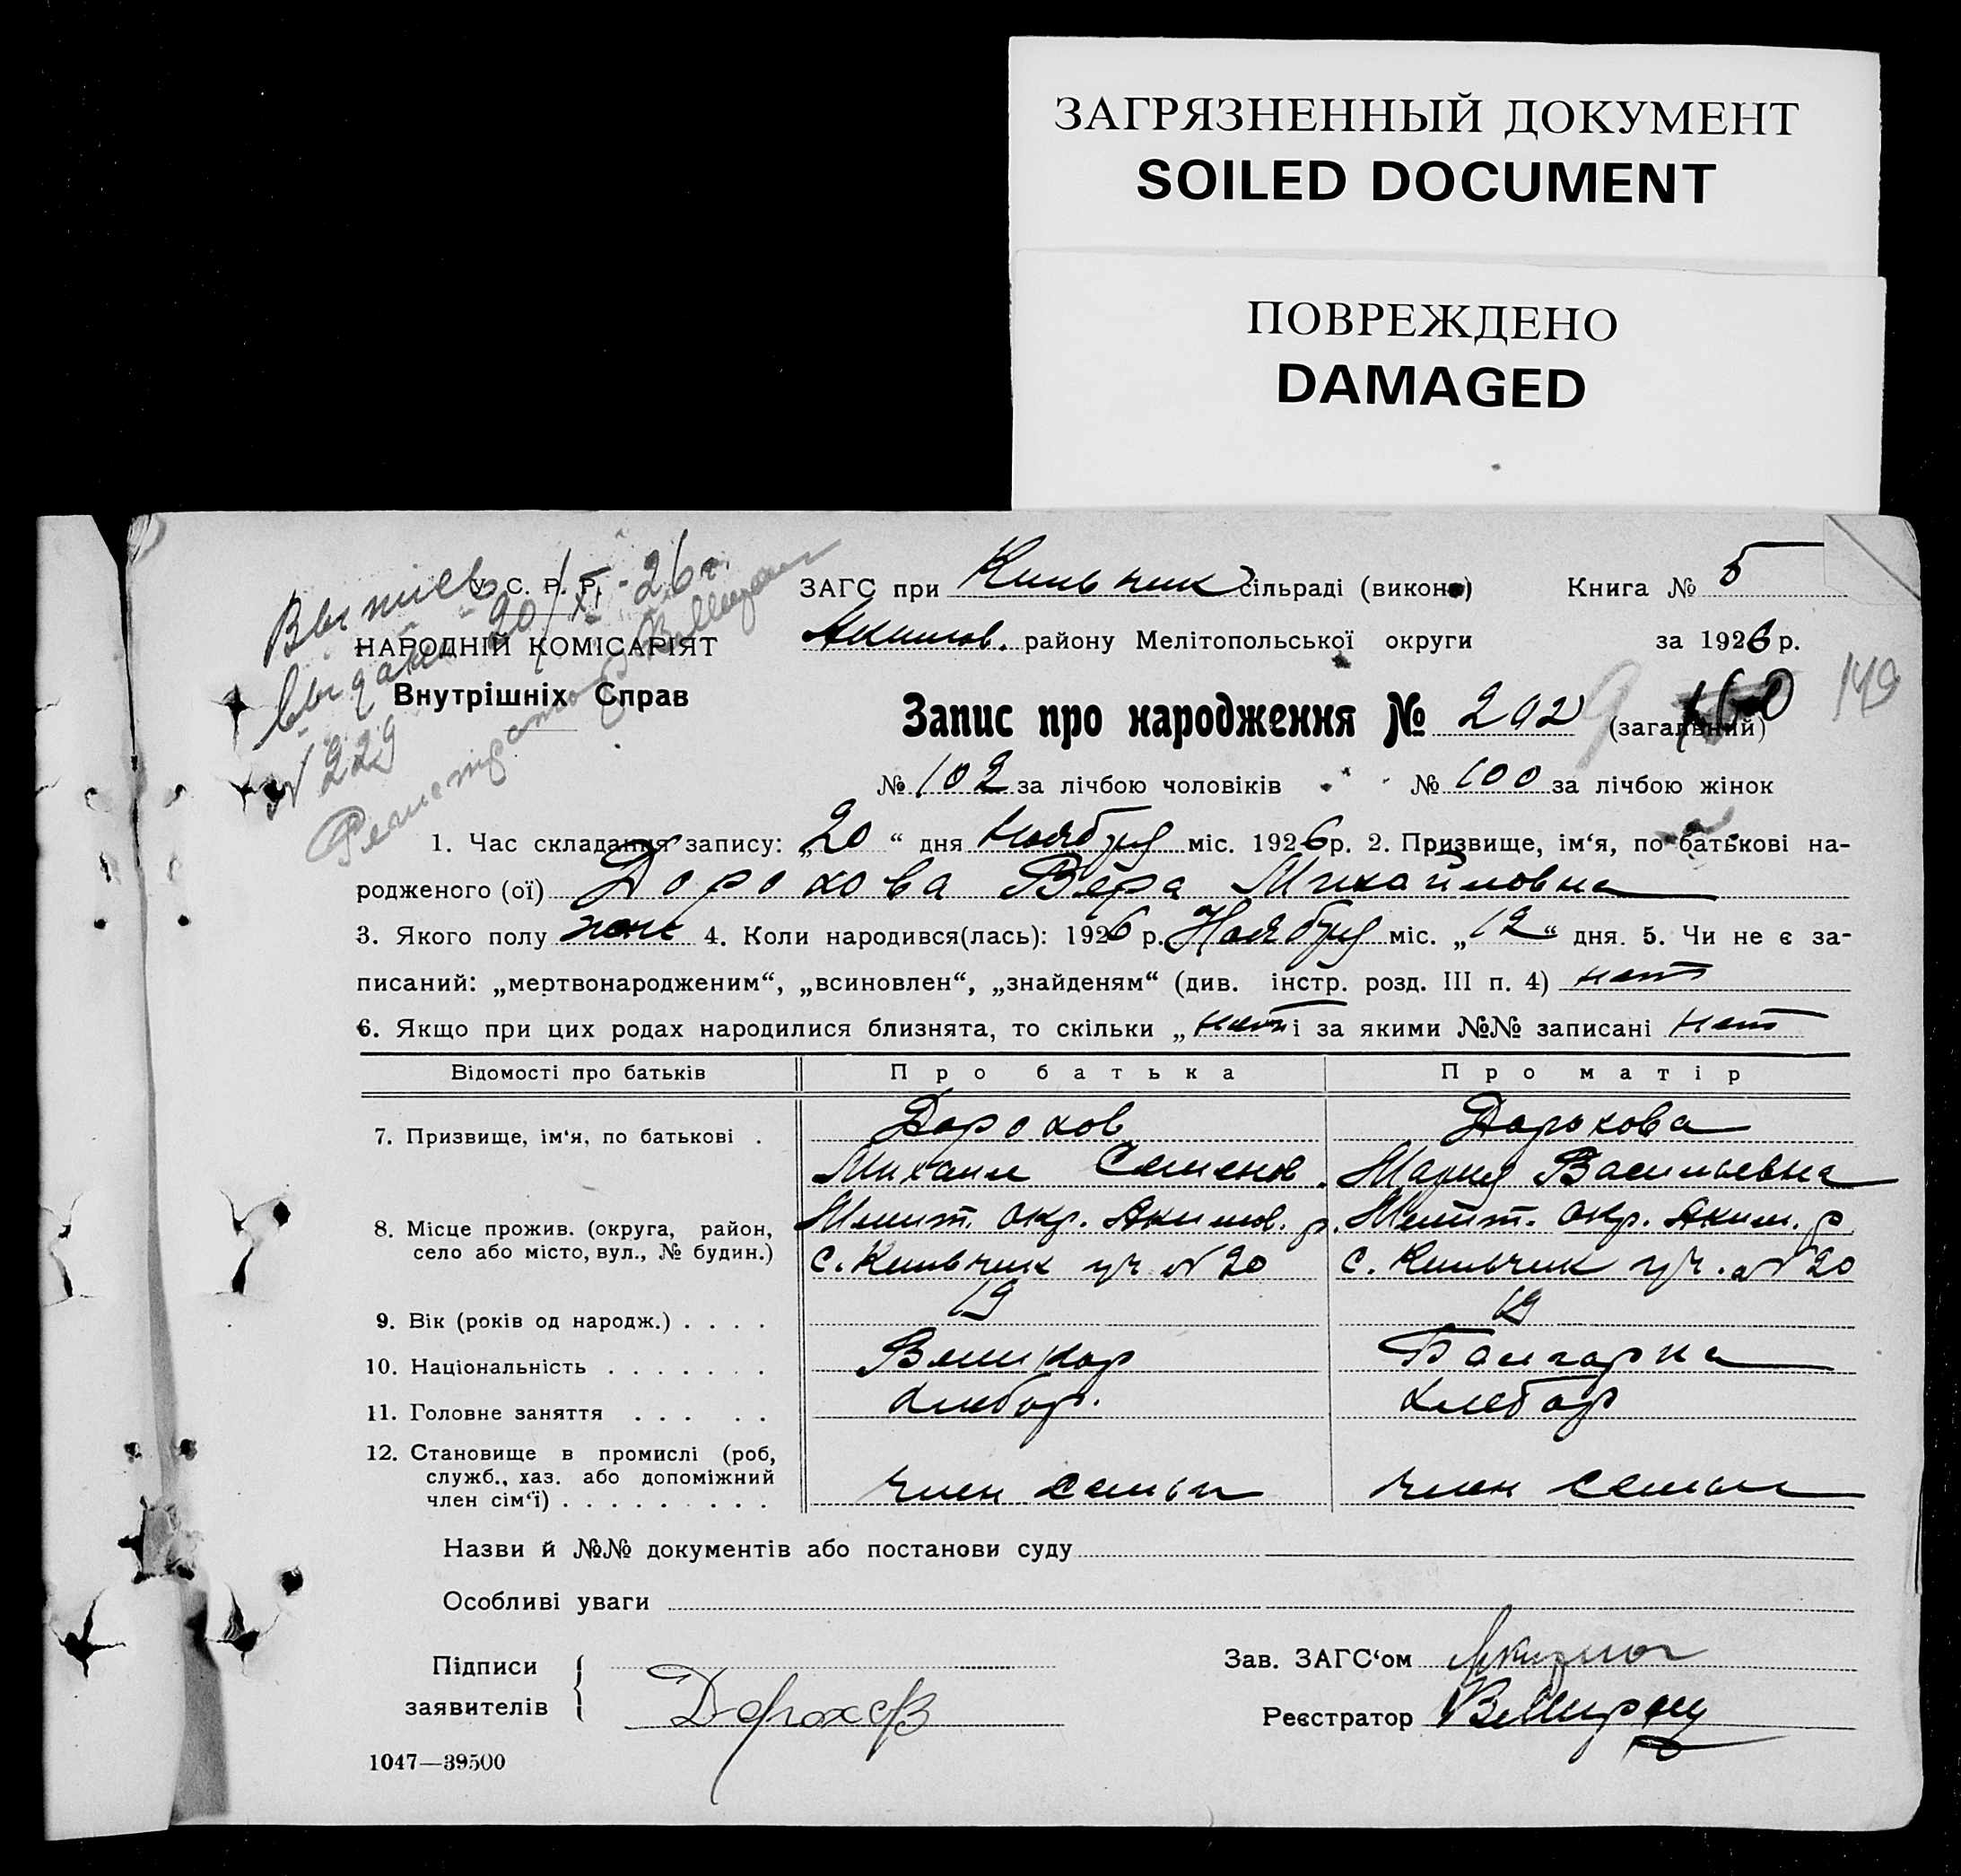 ЗАГРЯЗНЕННЫЙ ДОКУМЕНТ
SOILED DOCUMENT
ПОВРЕЖДЕНО
DAMAGED
У. С. Р. Р.
НАРОДНІЙ КОМІСАРІЯТ
Внутрішніх Справ
Выпись
выдана 20/XI-26 г.
№ 229
ЗАГС при Кильчик сільраді (викон) Книга № 5
Акимов. району Мелітопольської округи за 1926 р.
Запис про народження № 202 (загальний)
149
№ 102 за лічбою чоловіків № 100 за лічбою жінок
1. Час складання запису: „20“ дня Ноября міс. 1926 р. 2. Призвище, ім‘я, по батькові на-
родженого (ої) Дорохова Вера Михайловна
3. Якого полу жен 4. Коли народився(лась): 1926 р. Ноября міс. „12“ дня. 5. Чи не є за-
писаний: „мертвонародженим“, „всиновлен“, „знайденям“ (див. інстр. розд. III п. 4) нет
6. Якщо при цих родах народилися близнята, то скільки „нет і за якими №№ записані нет
Відомості про батьків Про батька Про матір
7. Призвище, ім‘я, по батькові . Дорохов Дорохова
Михаил Семенов. Мария Васильевна
8. Місце прожив. (округа, район, Мелит. окр. Акимов. р. Мелит. окр. Аким. р
село або місто, вул., № будин.) с. Кильчик уч № 20 с. Кильчик уч. № 20
9. Вік (років од народж.) . . . . 19 19
10. Національність . . . . . . . Великор Болгарка
11. Головне заняття . . . . . хлебор. хлебор
12. Становище в промислі (роб,
служб., хаз. або допоміжний
член сім‘ї) . . . . . . . . . член семьи член семьи
Назви й №№ документів або постанови суду
Особливі уваги
Підписи
заявителів
Дорохов
Зав. ЗАГС‘ом
Реєстратор
1047—39500